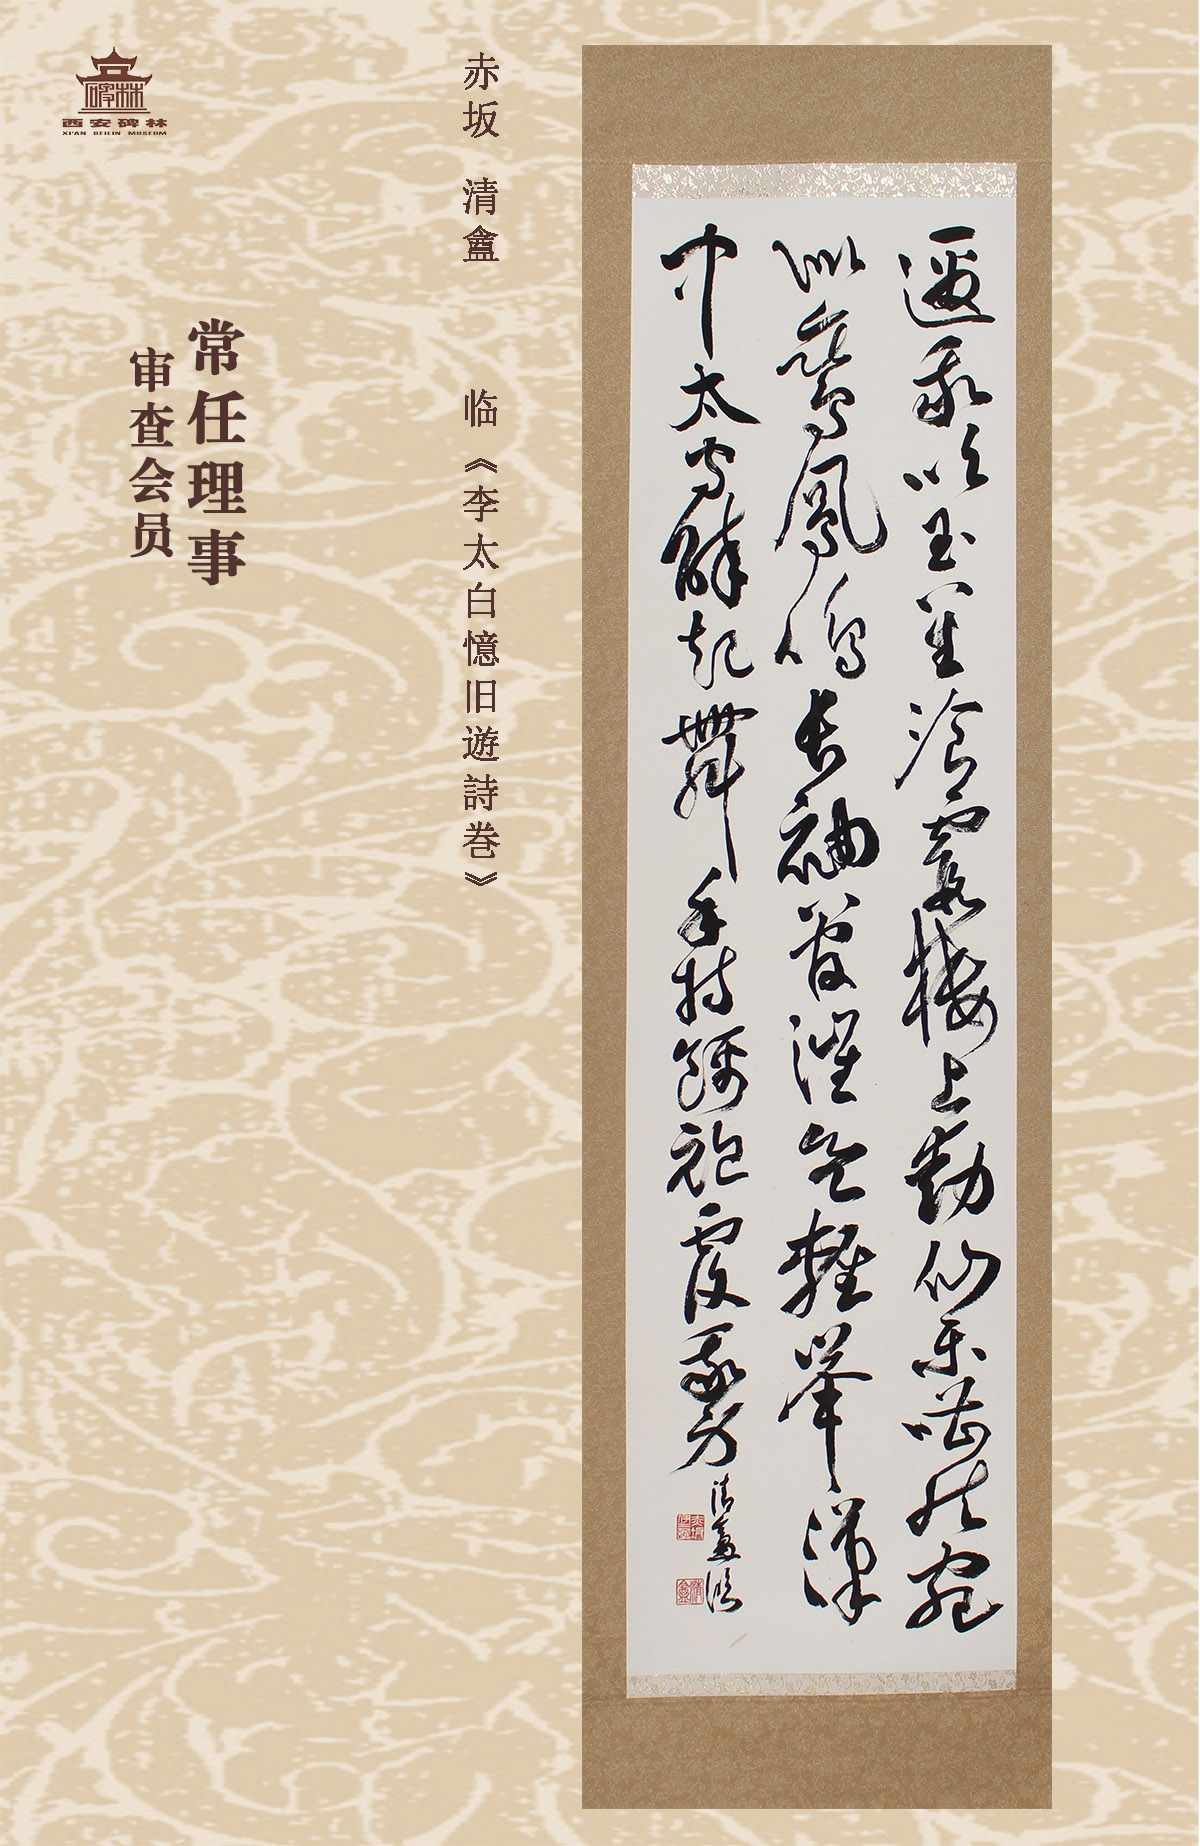 西安碑林
XI'AN BEILIN MUSEUM
邀我吹玉笙飡霞樓上動仙樂嘈然宛
似鸞鳳鳴長袖管催欲輕舉漢
中太守醉起舞手持錦袍覆我身
清盦臨
赤坂 清盦 临《李太白憶旧遊詩巻》
常任理事
审查会员